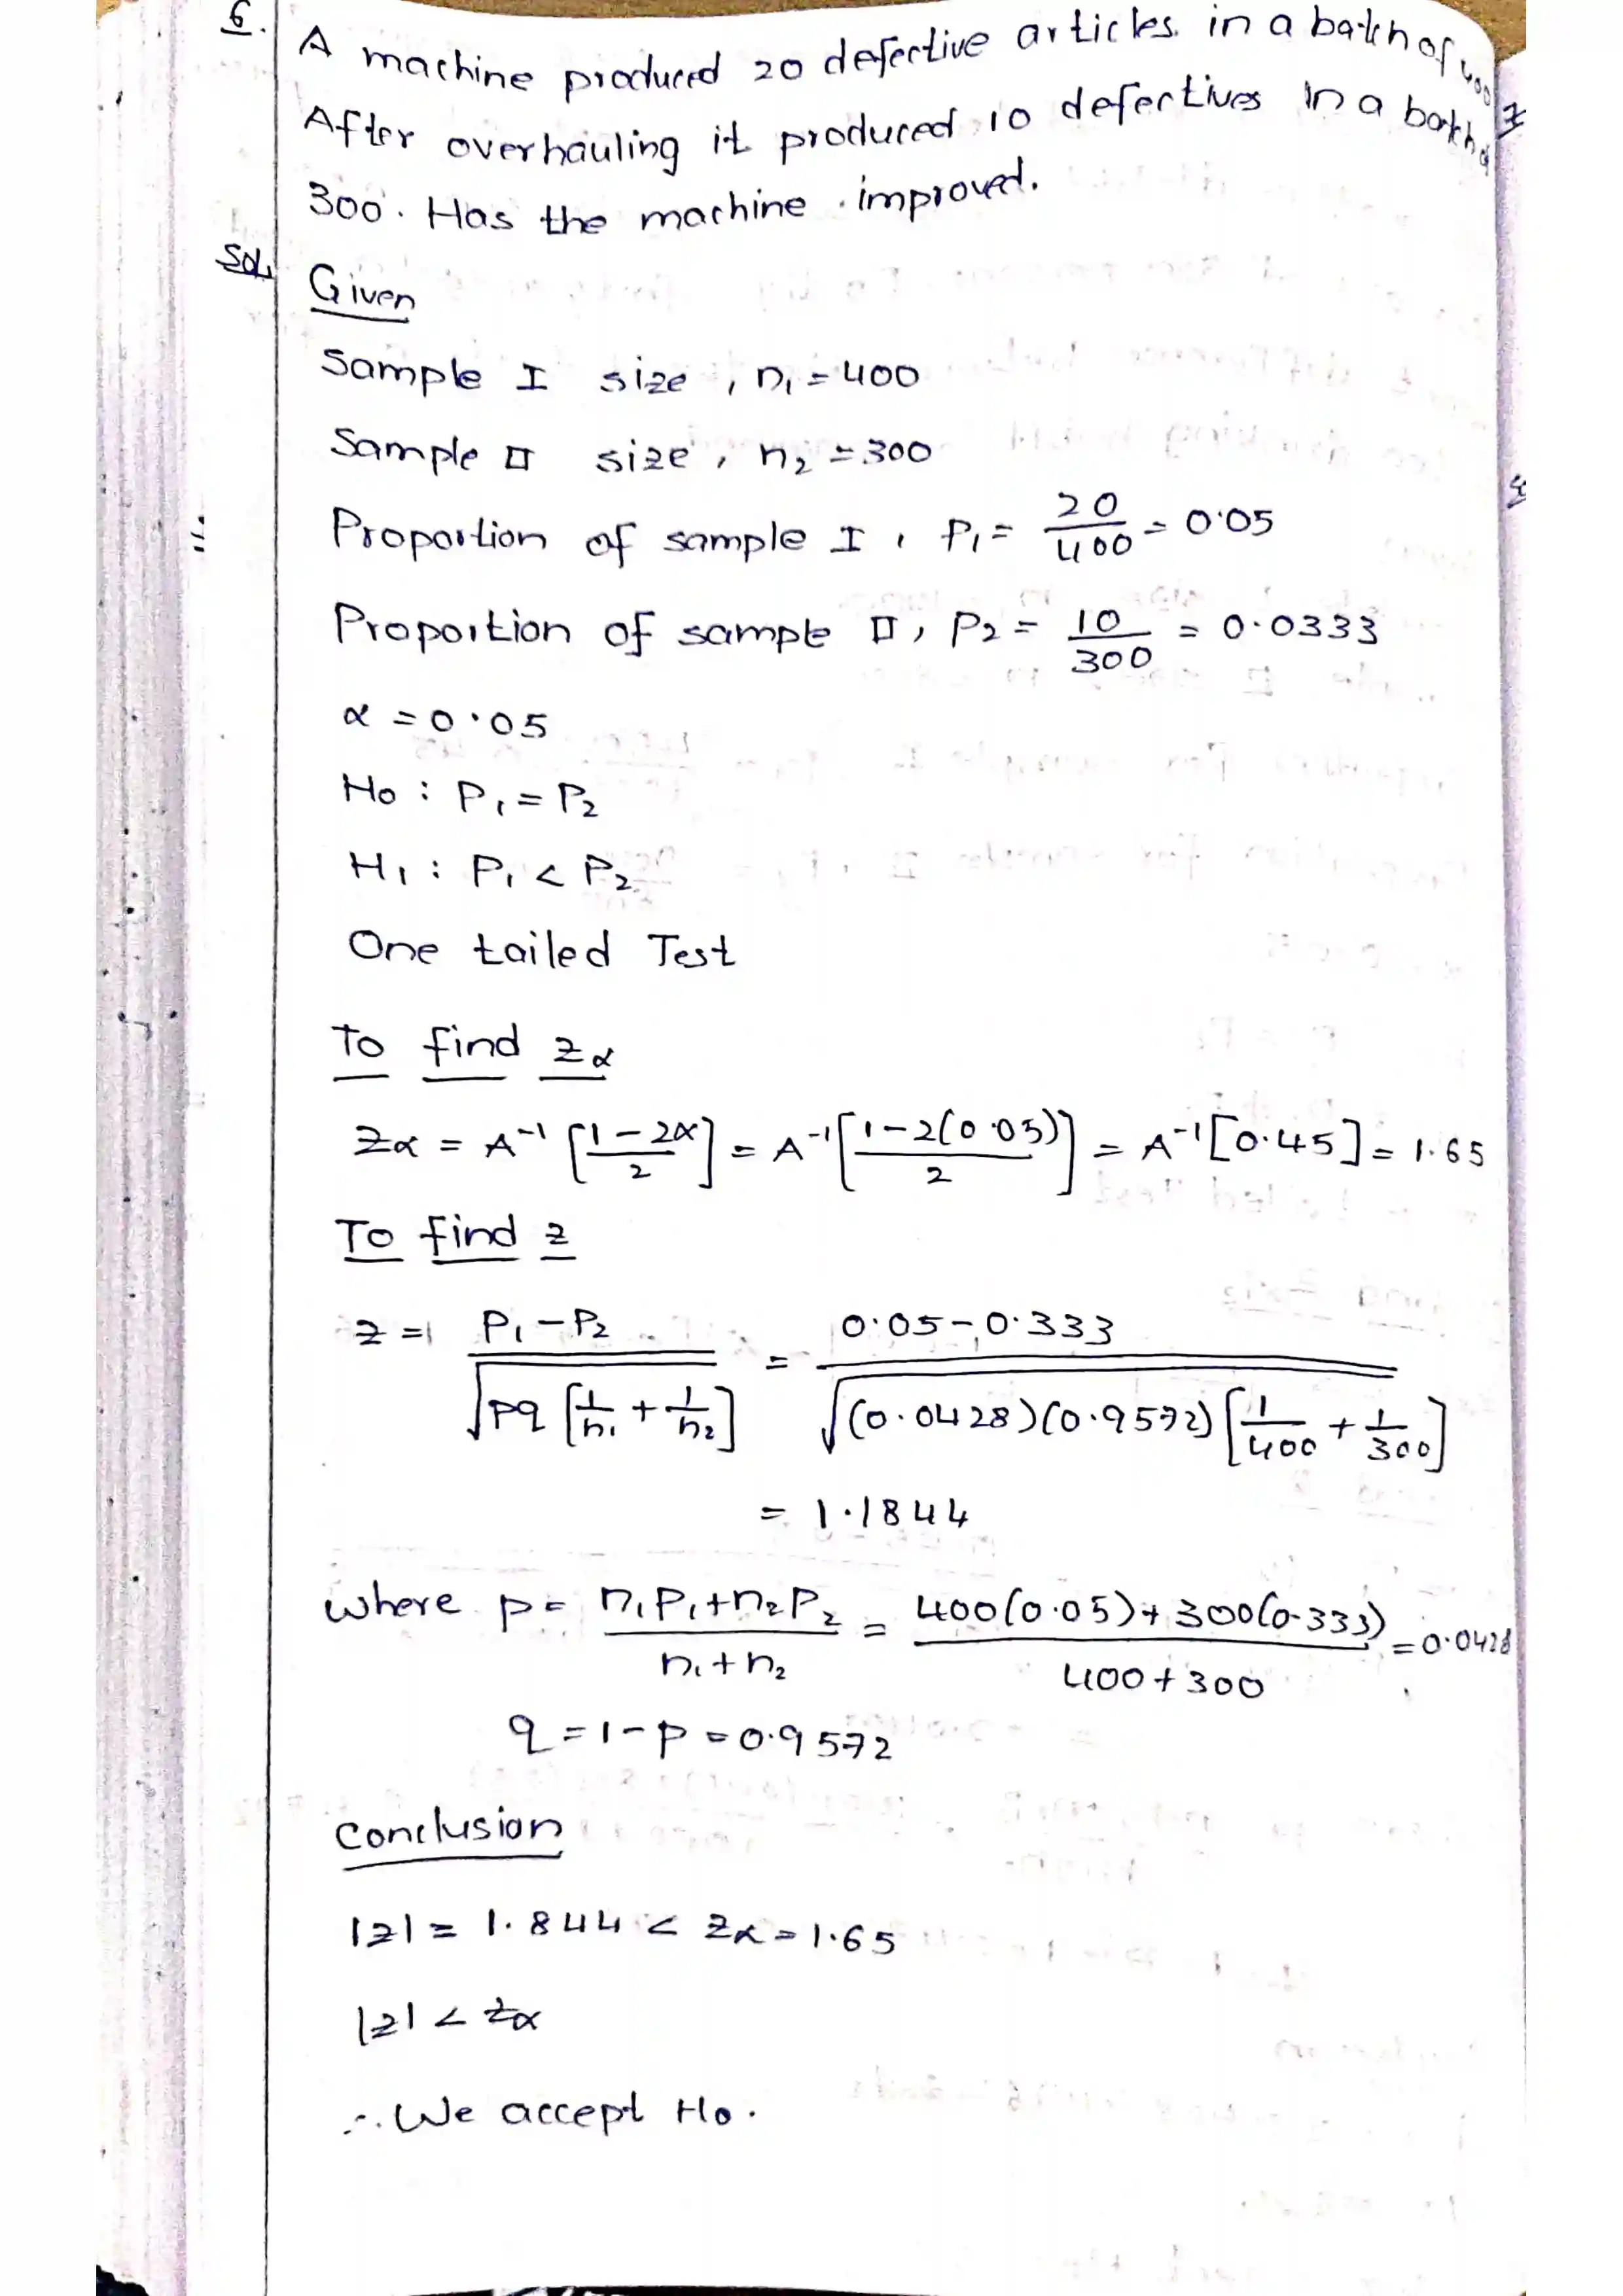 6. A machine produced 20 defective articles in a batch of 400
After overhauling it produced 10 defectives in a batch of
300. Has the machine improved.
Sol, Given
Sample I size, n₁ = 400
Sample II size, n₂ = 300
Proportion of sample I, P₁ = 20/400 = 0.05
Proportion of sample II, P₂ = 10/300 = 0.0333
α = 0.05
H₀ : P₁ = P₂
H₁ : P₁ < P₂
One tailed Test
To find zα
Zα = A⁻¹[(1-2α)/2] = A⁻¹[(1-2(0.05))/2] = A⁻¹[0.45] = 1.65
To find z
z = (P₁ - P₂)/√(pq[1/n₁ + 1/n₂]) = (0.05 - 0.333)/√((0.0428)(0.9572)[1/400 + 1/300])
= 1.1844
where p = (n₁P₁ + n₂P₂)/(n₁ + n₂) = (400(0.05) + 300(0.333))/(400 + 300) = 0.0428
q = 1 - p = 0.9572
Conclusion
|z| = 1.844 < zα = 1.65
|z| < zα
∴ We accept H₀.